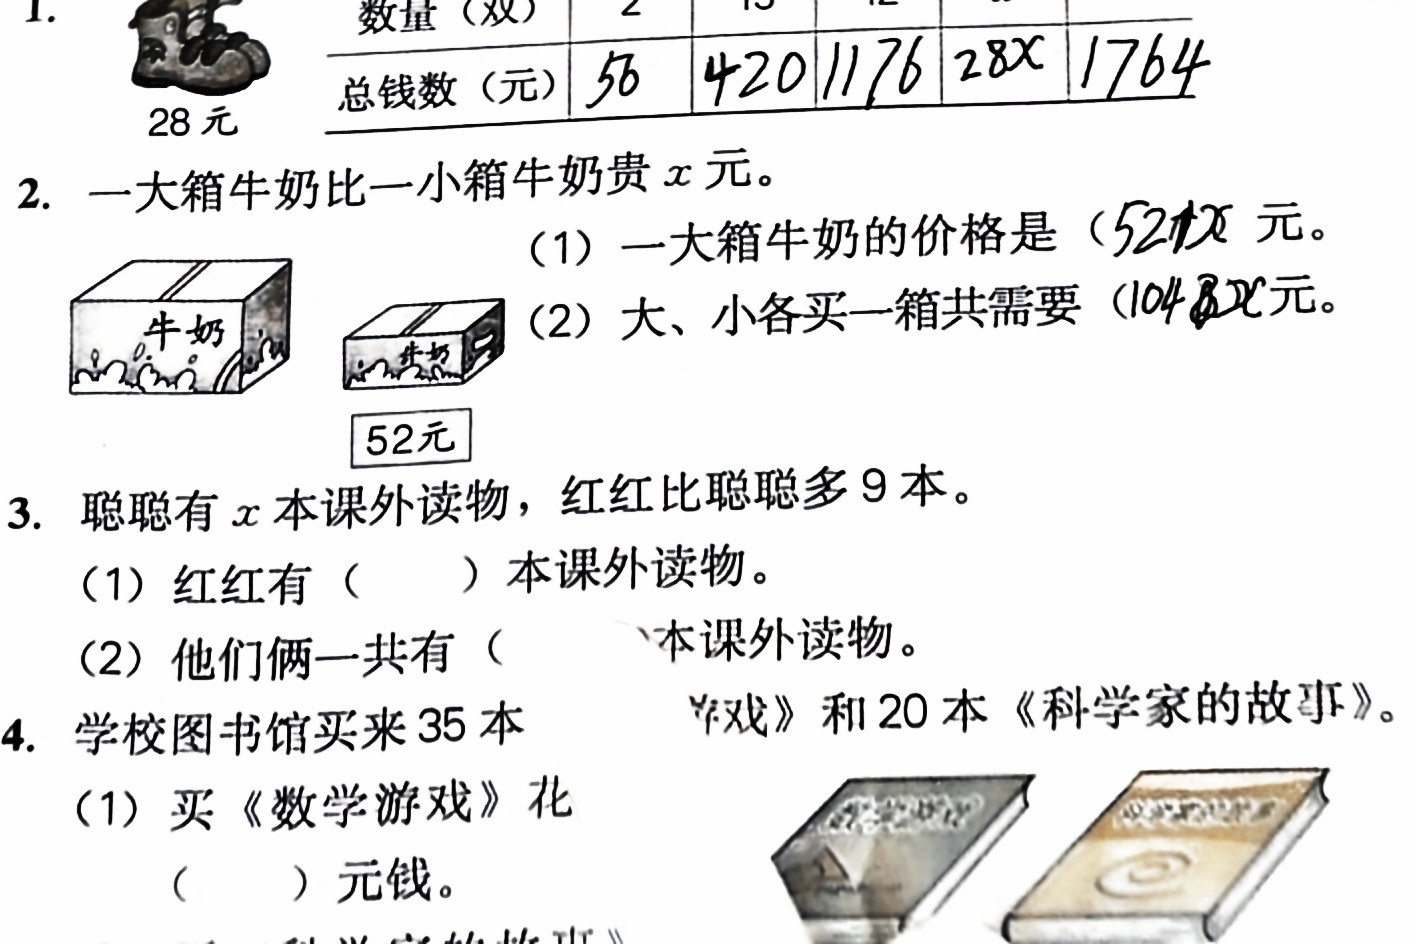 1.
数量（双） 2 15 42
总钱数（元） 56 420 1176 28x 1764
28元
2. 一大箱牛奶比一小箱牛奶贵 x 元。
（1）一大箱牛奶的价格是（52+x 元。
（2）大、小各买一箱共需要（104+x元。
牛奶
牛奶
52元
3. 聪聪有 x 本课外读物，红红比聪聪多 9 本。
（1）红红有（ ）本课外读物。
（2）他们俩一共有（ ）本课外读物。
4. 学校图书馆买来 35 本 戏》和 20 本《科学家的故事》。
（1）买《数学游戏》花
（ ）元钱。
科学家的故事》